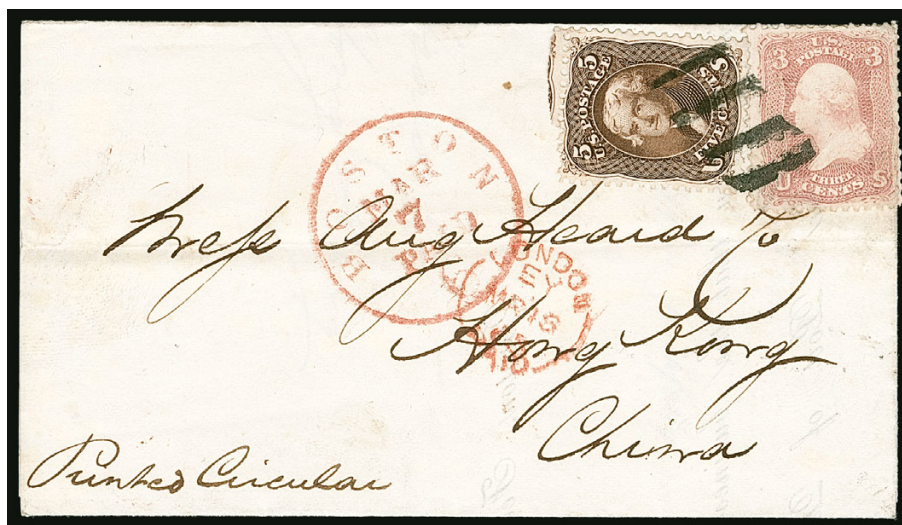 5 5
U.S. POSTAGE
FIVE C
3 3
U.S.
POSTAGE
U S
THREE
CENTS
BOSTON
MAR
7
PAID
LONDON
PAID
Mess Aug Heard & Co
Hong Kong
China
Printed Circular